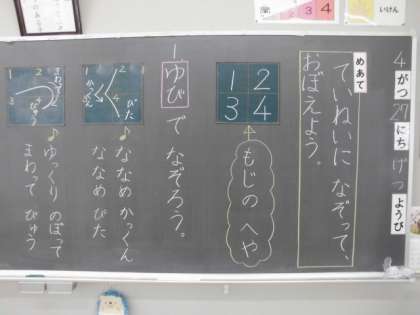 4がつ27にちげつようび
めあて
ていねいに なぞって、
おぼえよう。
1 2
3 4
もじの へや
1
ゆびで なぞろう。
1 2
4
かっくん
ぴた
♪ななめ かっくん
ななめ ぴた
1 2
3
まわって
びゅう
♪ゆっくり のぼって
まわって びゅう
2 3 4
いけん